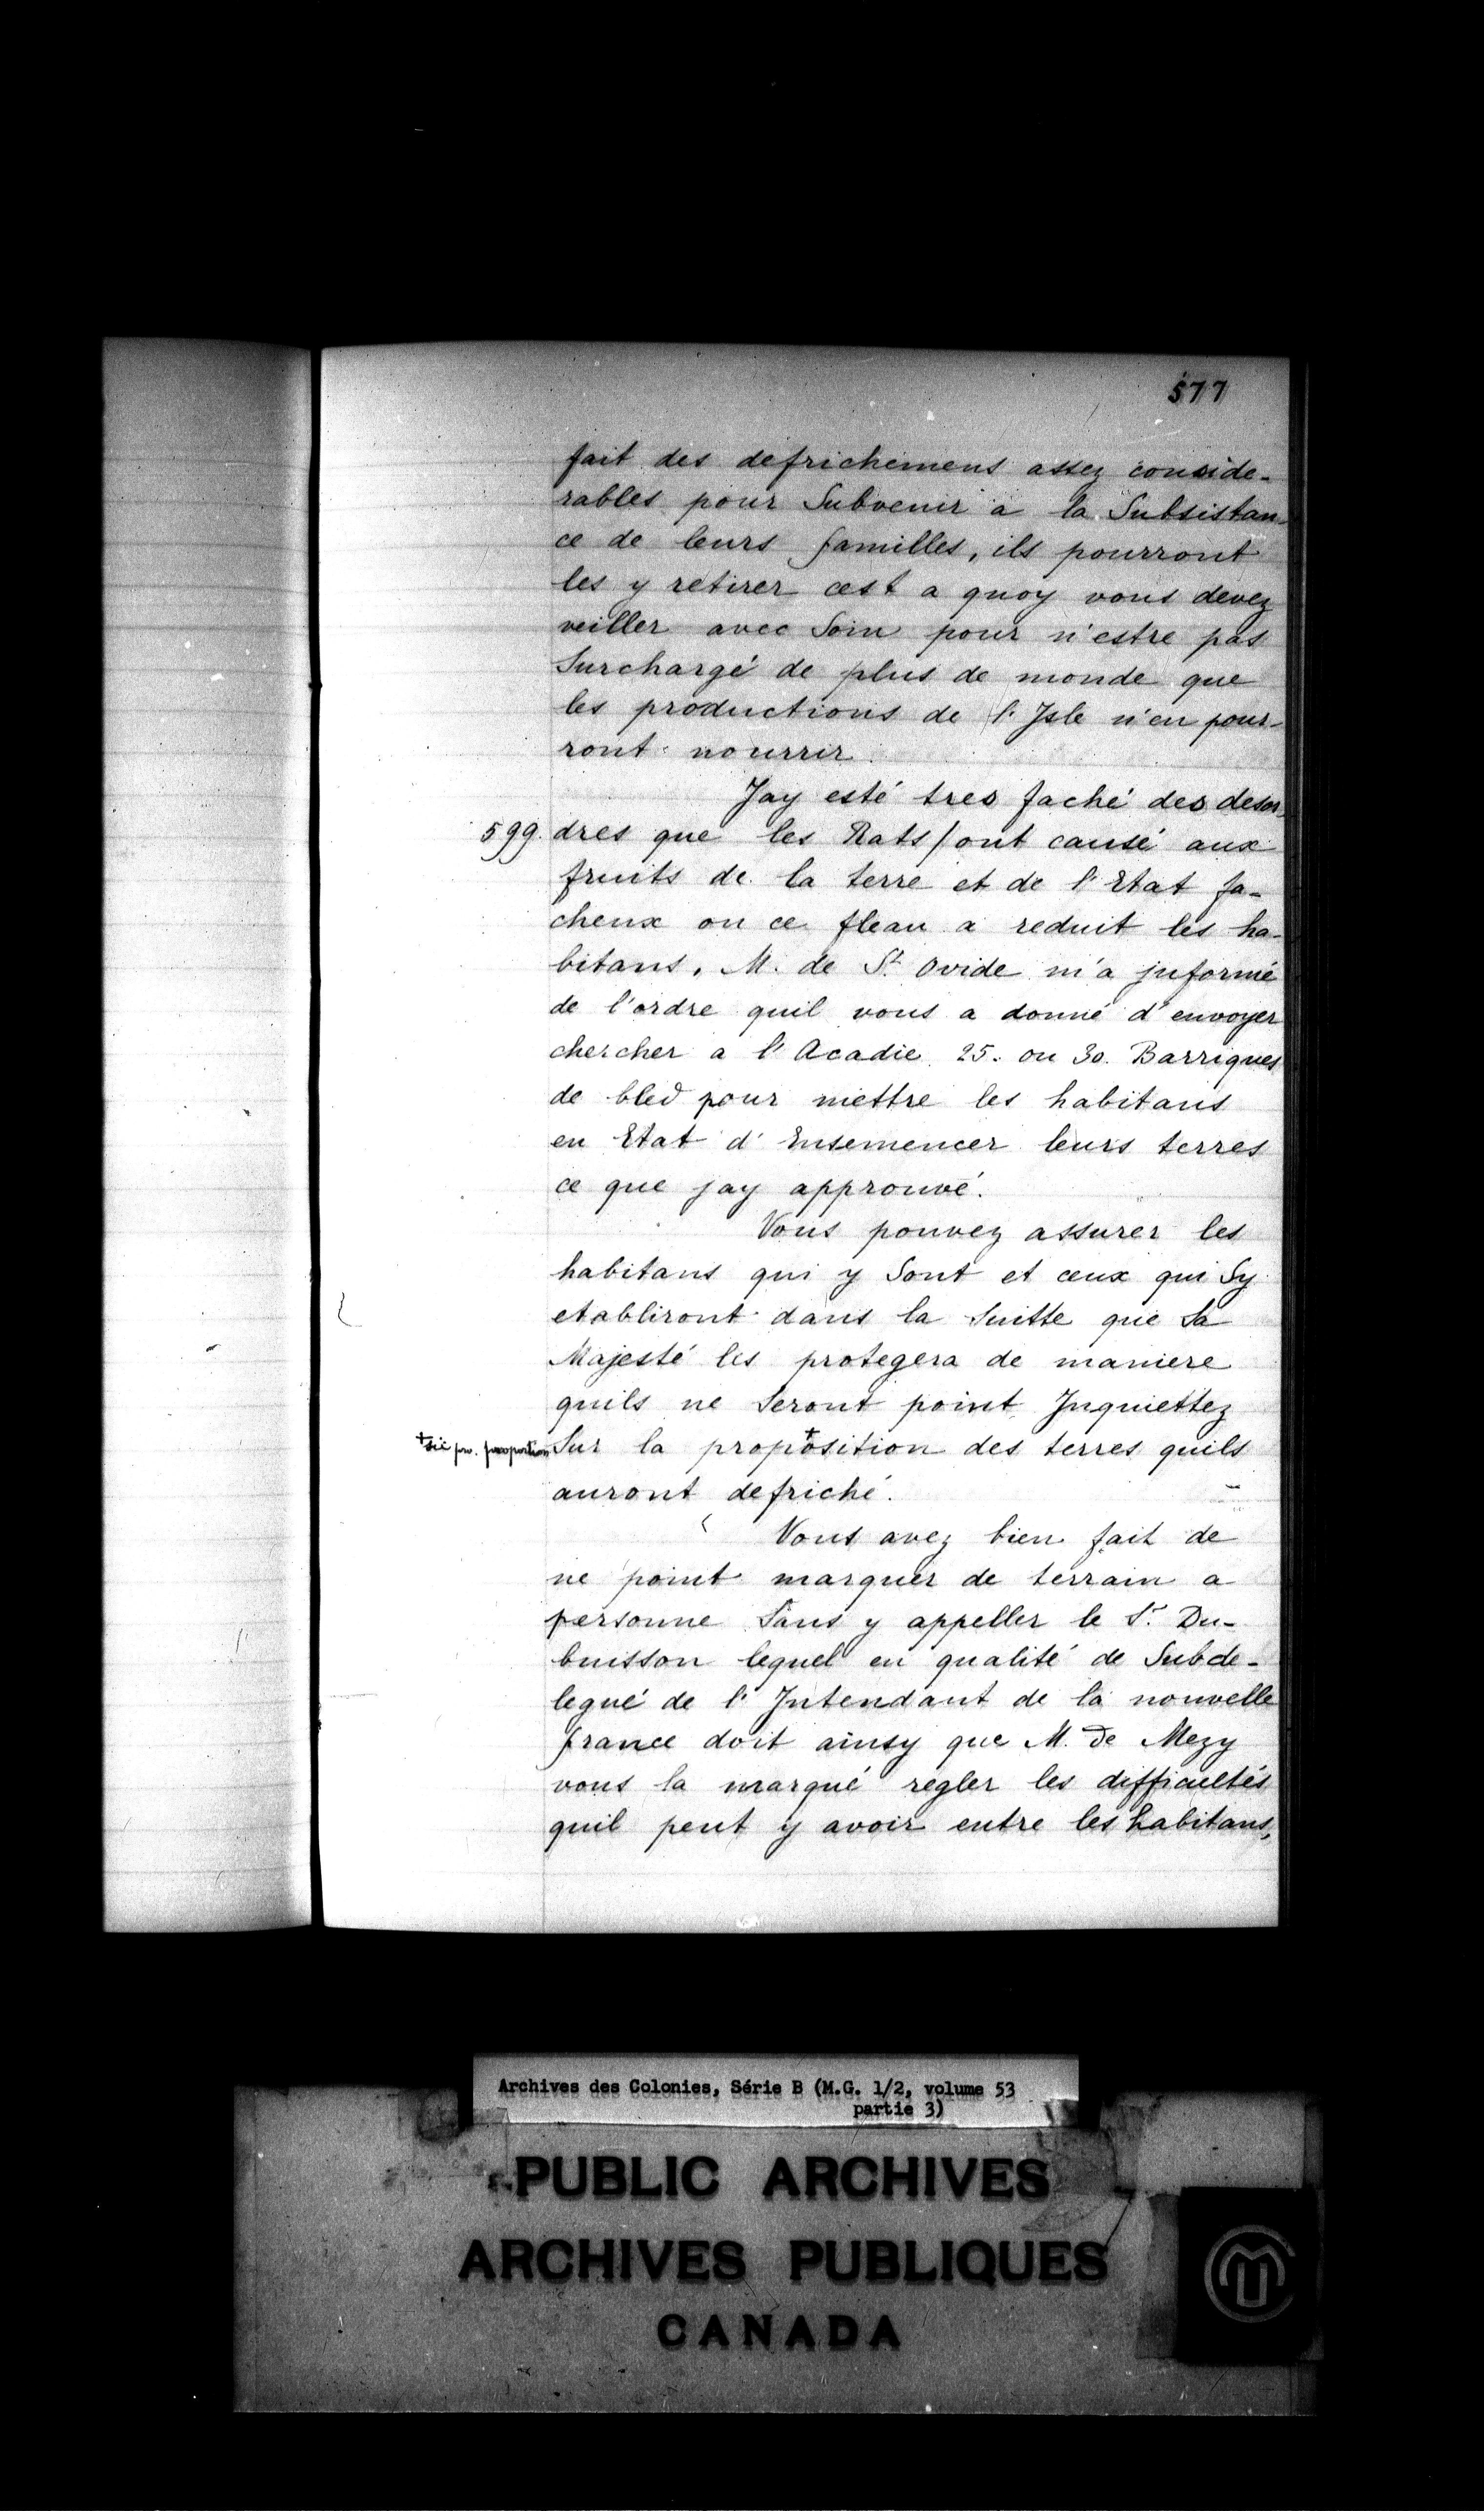 577
fait des defrichemens assez conside-
rables pour Subvenir a la Subsistan-
ce de leurs familles, ils pourront
les y retirer cest a quoy vous devez
veiller avec Soin pour n'estre pas
Surchargé de plus de monde que
les productions de l'Jsle n'en pour-
ront nourrir.
Jay esté tres faché des desor-
599. dres que les Rats/ont causé aux
fruits de la terre et de l'Etat fa-
cheux ou ce fleau a reduit les ha-
bitans. M. de St. Ovide m'a jnformé
de l'ordre quil vous a donné d'envoyer
chercher a l'Acadie 25. ou 30. Barriques
de bled pour mettre les habitans
en Etat d'Ensemencer leurs terres
ce que jay approuvé.
Vous pouvez assurer les
habitans qui y Sont et ceux qui Sy
etabliront dans la Suitte que Sa
Majesté les protegera de maniere
quils ne Seront point Jnquiettez
+sic pr. proportion Sur la prop+osition des terres quils
auront defriché.
Vous avez bien fait de
ne point marquer de terrain a
personne Sans y appeller le Sr. Du-
buisson lequel en qualité de Subde-
legué de l'Jntendant de la nouvelle
france doit ainsy que M. De Mezy
vous la marqué regler les difficultés
quil peut y avoir entre les habitans,
Archives des Colonies, Série B (M.G. 1/2, volume 53
partie 3)
PUBLIC ARCHIVES
ARCHIVES PUBLIQUES
CANADA